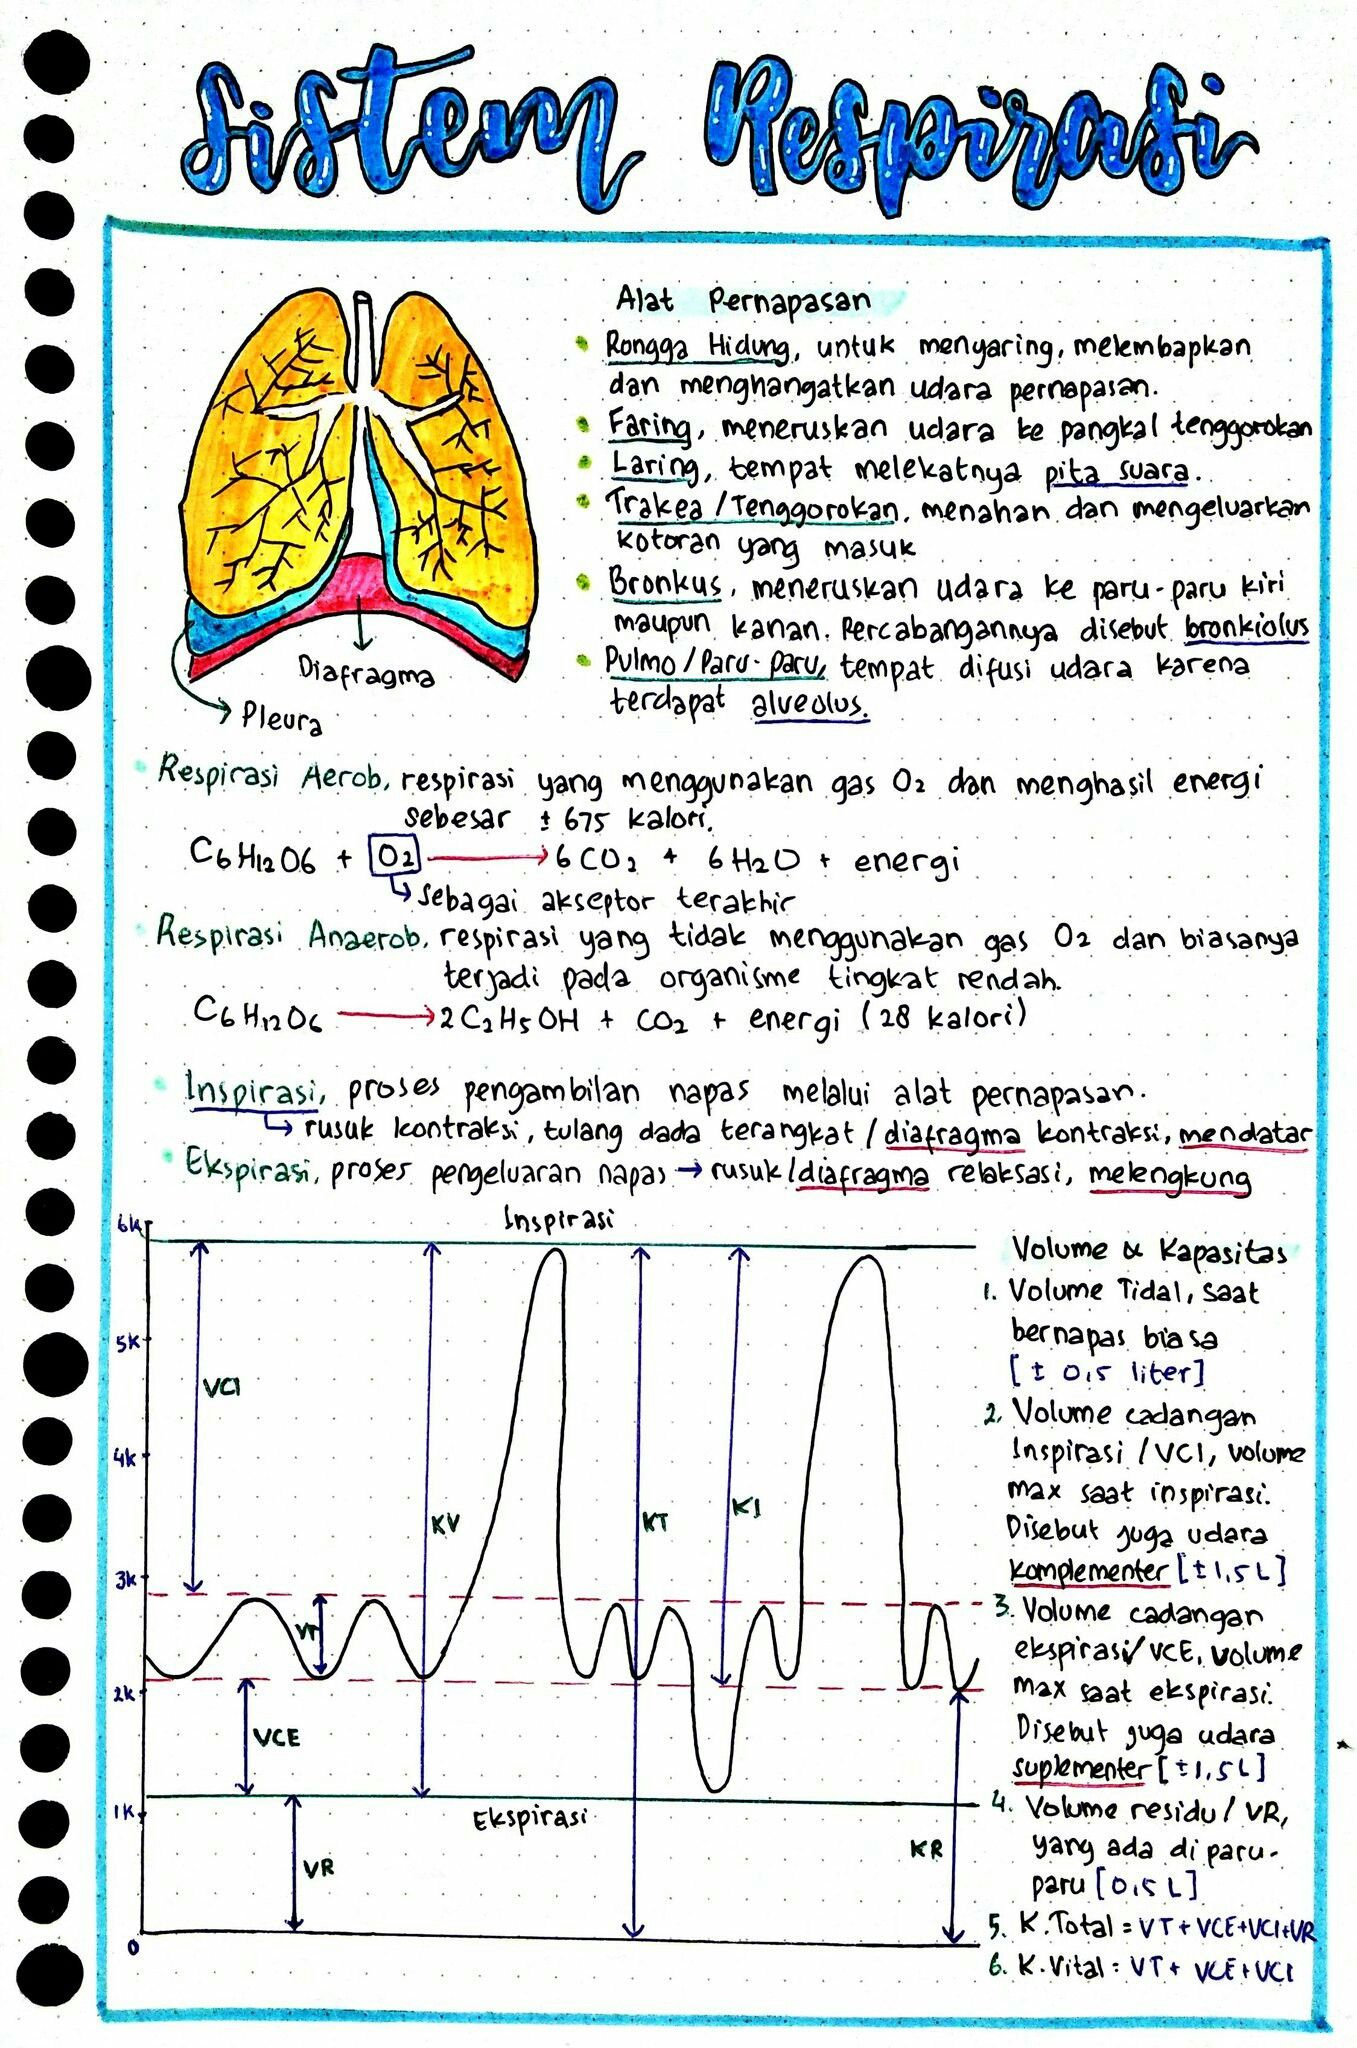 Sistem Respirasi
Alat Pernapasan
Rongga Hidung, untuk menyaring, melembapkan
dan menghangatkan udara pernapasan.
Faring, meneruskan udara ke pangkal tenggorokan
Laring, tempat melekatnya pita suara.
Trakea/Tenggorokan, menahan dan mengeluarkan
kotoran yang masuk
Bronkus, meneruskan udara ke paru-paru kiri
maupun kanan. Percabangannya disebut bronkiolus
Pulmo/Paru-paru, tempat difusi udara karena
terdapat alveolus.
Diafragma
Pleura
Respirasi Aerob, respirasi yang menggunakan gas O2 dan menghasil energi
sebesar ± 675 kalori.
C6H12O6 + O2 → 6CO2 + 6H2O + energi
↳ sebagai akseptor terakhir
Respirasi Anaerob, respirasi yang tidak menggunakan gas O2 dan biasanya
terjadi pada organisme tingkat rendah.
C6H12O6 → 2C2H5OH + CO2 + energi (28 kalori)
Inspirasi, proses pengambilan napas melalui alat pernapasan.
↳ rusuk kontraksi, tulang dada terangkat/diafragma kontraksi, mendatar
Ekspirasi, proses pengeluaran napas → rusuk/diafragma relaksasi, melengkung
Inspirasi
6k
5k
4k
3k
2k
1k
0
VCI
KV
KT
KI
VT
VCE
Ekspirasi
VR
KR
Volume & Kapasitas
1. Volume Tidal, saat
bernapas biasa
[± 0,5 liter]
2. Volume cadangan
Inspirasi/VCI, volume
max saat inspirasi.
Disebut juga udara
komplementer [±1,5L]
3. Volume cadangan
ekspirasi/VCE, volume
max saat ekspirasi.
Disebut juga udara
suplementer [±1,5L]
4. Volume residu/VR,
yang ada di paru-
paru [0,5 L]
5. K.Total = VT+VCE+VCI+VR
6. K.Vital = VT+VCE+VCI